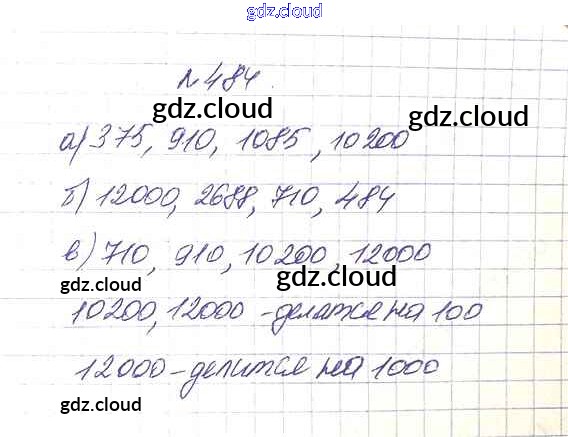 gdz.cloud
№484.
gdz.cloud gdz.cloud
а) 375, 910, 1085, 10200
б) 12000, 2688, 710, 484
в) 710, 910, 10200, 12000
gdz.cloud gdz.cloud
10200, 12000 - делятся на 100
12000 - делится на 1000
gdz.cloud gdz.cloud
gdz.cloud